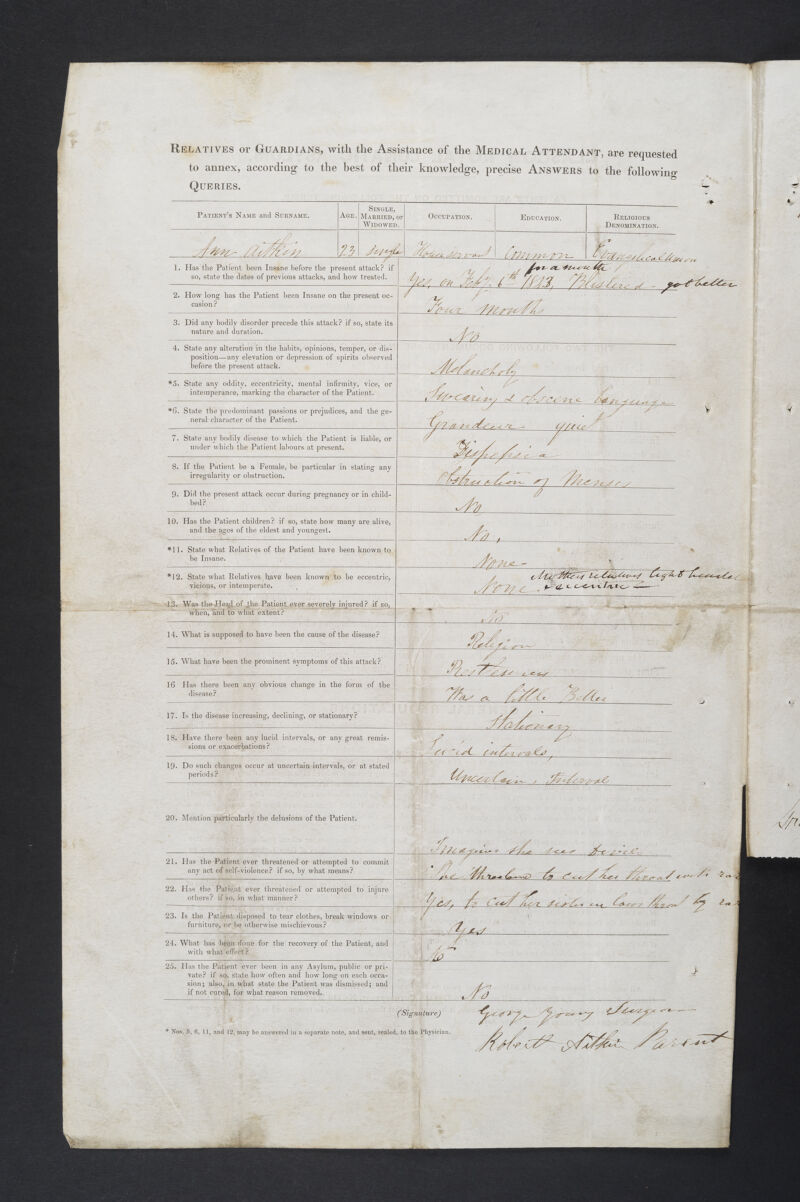 RELATIVES or GUARDIANS, with the Assistance of the MEDICAL ATTENDANT, are requested
to annex, according to the best of their knowledge, precise ANSWERS to the following
QUERIES.
PATIENT'S NAME and SURNAME. AGE. SINGLE, MARRIED, or WIDOWED. OCCUPATION. EDUCATION. RELIGIOUS DENOMINATION.
Ann Aitkin 23 Single House Servant Common Evangelical Union
1. Has the Patient been Insane before the present attack? if
so, state the dates of previous attacks, and how treated.
for a month
Yes, on Feby. 6th 1843, Blistered - got better
2. How long has the Patient been Insane on the present oc-
casion?
Four months
3. Did any bodily disorder precede this attack? if so, state its
nature and duration.
No
4. State any alteration in the habits, opinions, temper, or dis-
position—any elevation or depression of spirits observed
before the present attack.
Melancholy
*5. State any oddity, eccentricity, mental infirmity, vice, or
intemperance, marking the character of the Patient.
Swearing & obscene language
*6. State the predominant passions or prejudices, and the ge-
neral character of the Patient.
Grandeur quiet
7. State any bodily disease to which the Patient is liable, or
under which the Patient labours at present.
Dispepsia
8. If the Patient be a Female, be particular in stating any
irregularity or obstruction.
Obstruction of Menses
9. Did the present attack occur during pregnancy or in child-
bed?
No
10. Has the Patient children? if so, state how many are alive,
and the ages of the eldest and youngest.
No,
*11. State what Relatives of the Patient have been known to
be Insane.
None
*12. State what Relatives have been known to be eccentric,
vicious, or intemperate.
Mothers relatives light headed
None & eccentric
13. Was the Head of the Patient ever severely injured? if so,
when, and to what extent?
No
14. What is supposed to have been the cause of the disease?
Religion
15. What have been the prominent symptoms of this attack?
Restlessness
16 Has there been any obvious change in the form of the
disease?
Was a little Better
17. Is the disease increasing, declining, or stationary?
Stationary
18. Have there been any lucid intervals, or any great remis-
sions or exacerbations?
Lucid intervals,
19. Do such changes occur at uncertain intervals, or at stated
periods?
Uncertain, Interval
20. Mention particularly the delusions of the Patient.
Imagines she sees Devil
21. Has the Patient ever threatened or attempted to commit
any act of self-violence? if so, by what means?
to cut her throat with
22. Has the Patient ever threatened or attempted to injure
others? if so, in what manner?
Yes, to cut her sister in laws throat by
23. Is the Patient disposed to tear clothes, break windows or
furniture, or be otherwise mischievous?
Yes
24. What has been done for the recovery of the Patient, and
with what effect?
25. Has the Patient ever been in any Asylum, public or pri-
vate? if so, state how often and how long on each occa-
sion; also, in what state the Patient was dismissed; and
if not cured, for what reason removed.
No
(Signature) George Young Surgeon
* Nos. 5, 6, 11, and 12, may be answered in a separate note, and sent, sealed, to the Physician.
Robert Aitkin Parent